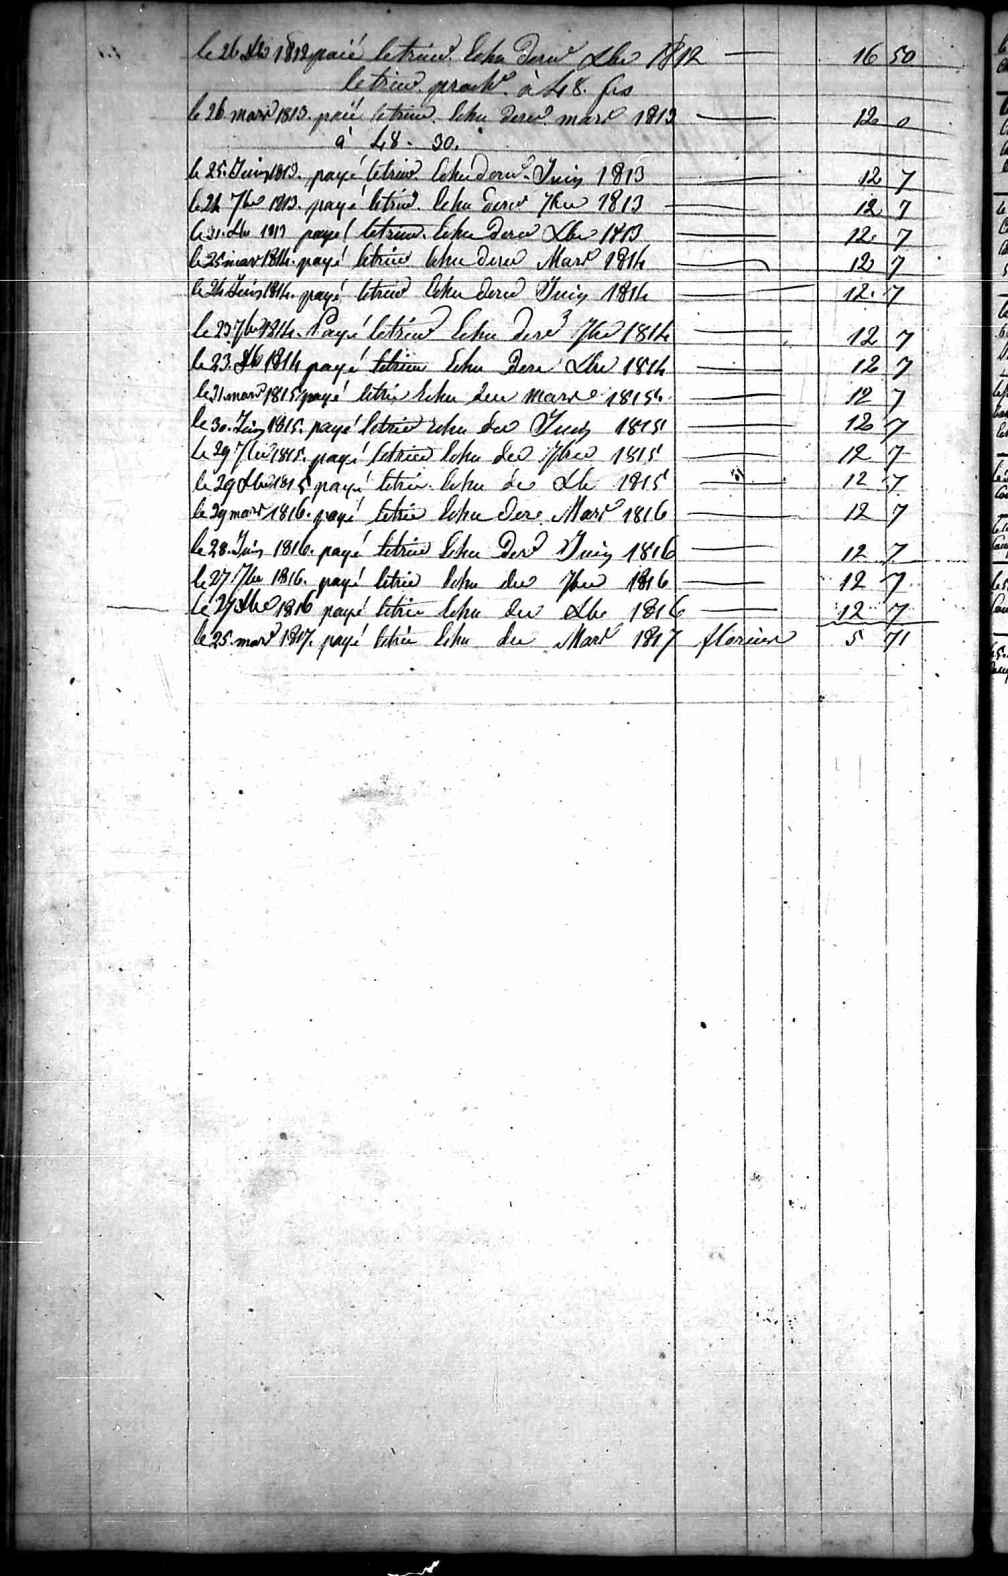 le 26 Xbe 1812 paié le trim. Echu dern Xbe 1812 — 16 50
le trim. proch. à 48. frs
le 26 mars 1813. paié le trim. Echu dern mars 1813 — 12 0
à 48. 30.
le 25. Juin 1813. payé le trim. Echu dern. Juin 1813 — 12 7
le 24 7bre 1813. payé le trim. Echu dern 7bre 1813 — 12 7
le 31. Xbe 1813 payé le trim. Echu dern Xbe 1813 — 12. 7
le 25 mars 1814. payé le trim Echu dern Mars 1814 — 12 7
le 24 Juin 1814. payé le trim Echu dern Juin 1814 — 12. 7
le 23 7bre 1814. Payé le trim Echu dern 7bre 1814 — 12 7
le 23. Xbe 1814 payé le trim Echu Dern Xbre 1814 — 12 7
le 31. mars 1815 payé le trim Echu deu mars 1815. — 12 7
le 30. Juin 1815. payé le trim echu deu Juin 1815 — 12 7
le 29 7bre 1815. payé le trim Echu deu 7bre 1815 — 12 7
le 29 Xbre 1815 payé le trim. Echu de Xbe 1815 — 12 7
le 29 mars 1816. payé le trim Echu Der. Mars 1816 — 12 7
le 28. Juin 1816. payé le trim Echu Der Juin 1816 — 12 7
le 27 7bre 1816. payé le trim Echu deu 7bre 1816 — 12 7
le 27 Xbre 1816 payé le trim Echu deu Xbe 1816 — 12 7
le 25. mars 1817. payé le trim Echu deu Mars 1817 florins 5 71